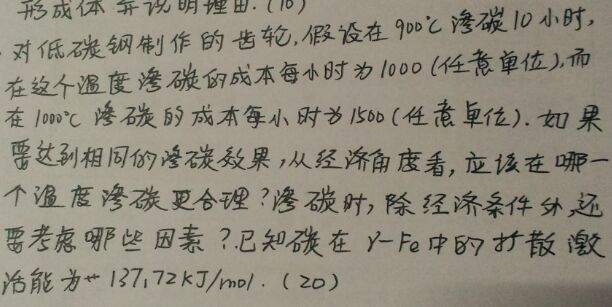 形成体并说明理由.(10)
对低碳钢制作的齿轮,假设在900℃渗碳10小时,
在这个温度渗碳的成本每小时为1000(任意单位),而
在1000℃渗碳的成本每小时为1500(任意单位).如果
要达到相同的渗碳效果,从经济角度看,应该在哪一
个温度渗碳更合理?渗碳时,除经济条件外,还
要考虑哪些因素?已知碳在γ-Fe中的扩散激
活能为 137.72KJ/mol.(20)